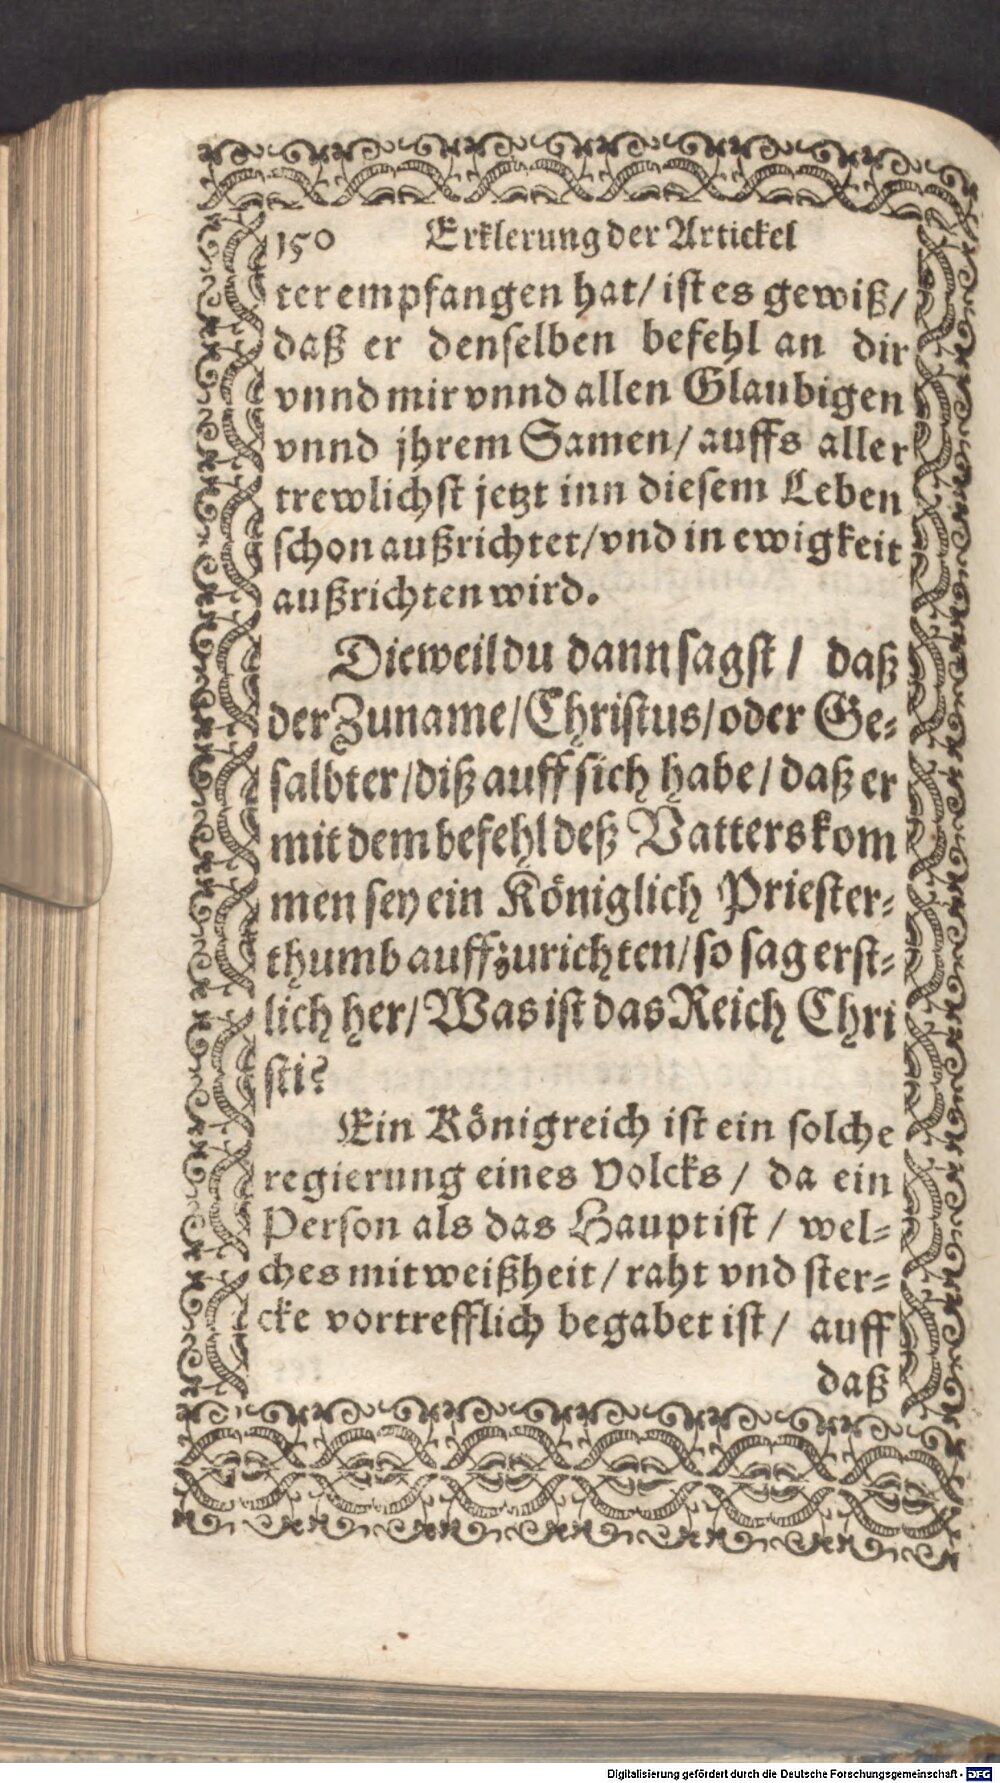 150 Erklerung der Artickel
ter empfangen hat/ ist es gewiß/
daß er denselben befehl an dir
vnnd mir vnnd allen Glaubigen
vnnd jhrem Samen/ auffs aller
trewlichst jetzt inn diesem Leben
schon außrichtet/ vnd in ewigkeit
außrichten wird.
Dieweil du dann sagst / daß
der Zuname/ Christus/ oder Ge-
salbter/ diß auff sich habe/ daß er
mit dem befehl deß Vatters kom
men sey ein Königlich Priester-
thumb auffzurichten/ so sag erst-
lich her/ Was ist das Reich Chri
sti?
Ein Königreich ist ein solche
regierung eines Volcks / da ein
Person als das Haupt ist / wel-
ches mit weißheit / raht vnd ster-
cke vortrefflich begabet ist / auff
daß
Digitalisierung gefördert durch die Deutsche Forschungsgemeinschaft - DFG